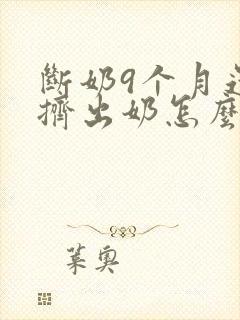 斷奶9个月还
擠出奶怎麼
葉奥